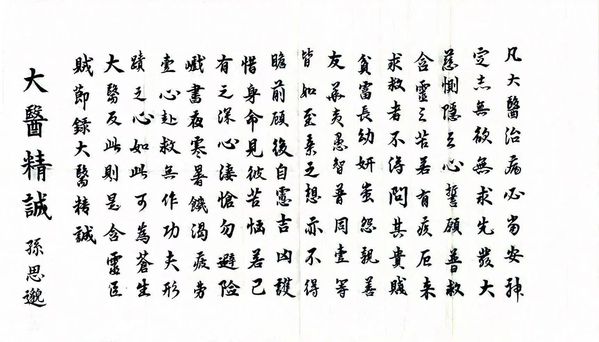 凡大醫治病必當安神
定志無欲無求先發大
慈惻隱之心誓願普救
含靈之苦若有疾厄来
求救者不得問其貴賤
貧富長幼妍蚩怨親善
友華夷愚智普同壹等
皆如至親之想亦不得
瞻前顧後自慮吉凶護
惜身命見彼苦惱若己
有之深心淒愴勿避險
巇晝夜寒暑饑渴疲勞
壹心赴救無作功夫形
蹟之心如此可為蒼生
大醫反此則是含靈巨
賊節錄大醫精誠
大醫精誠 孫思邈